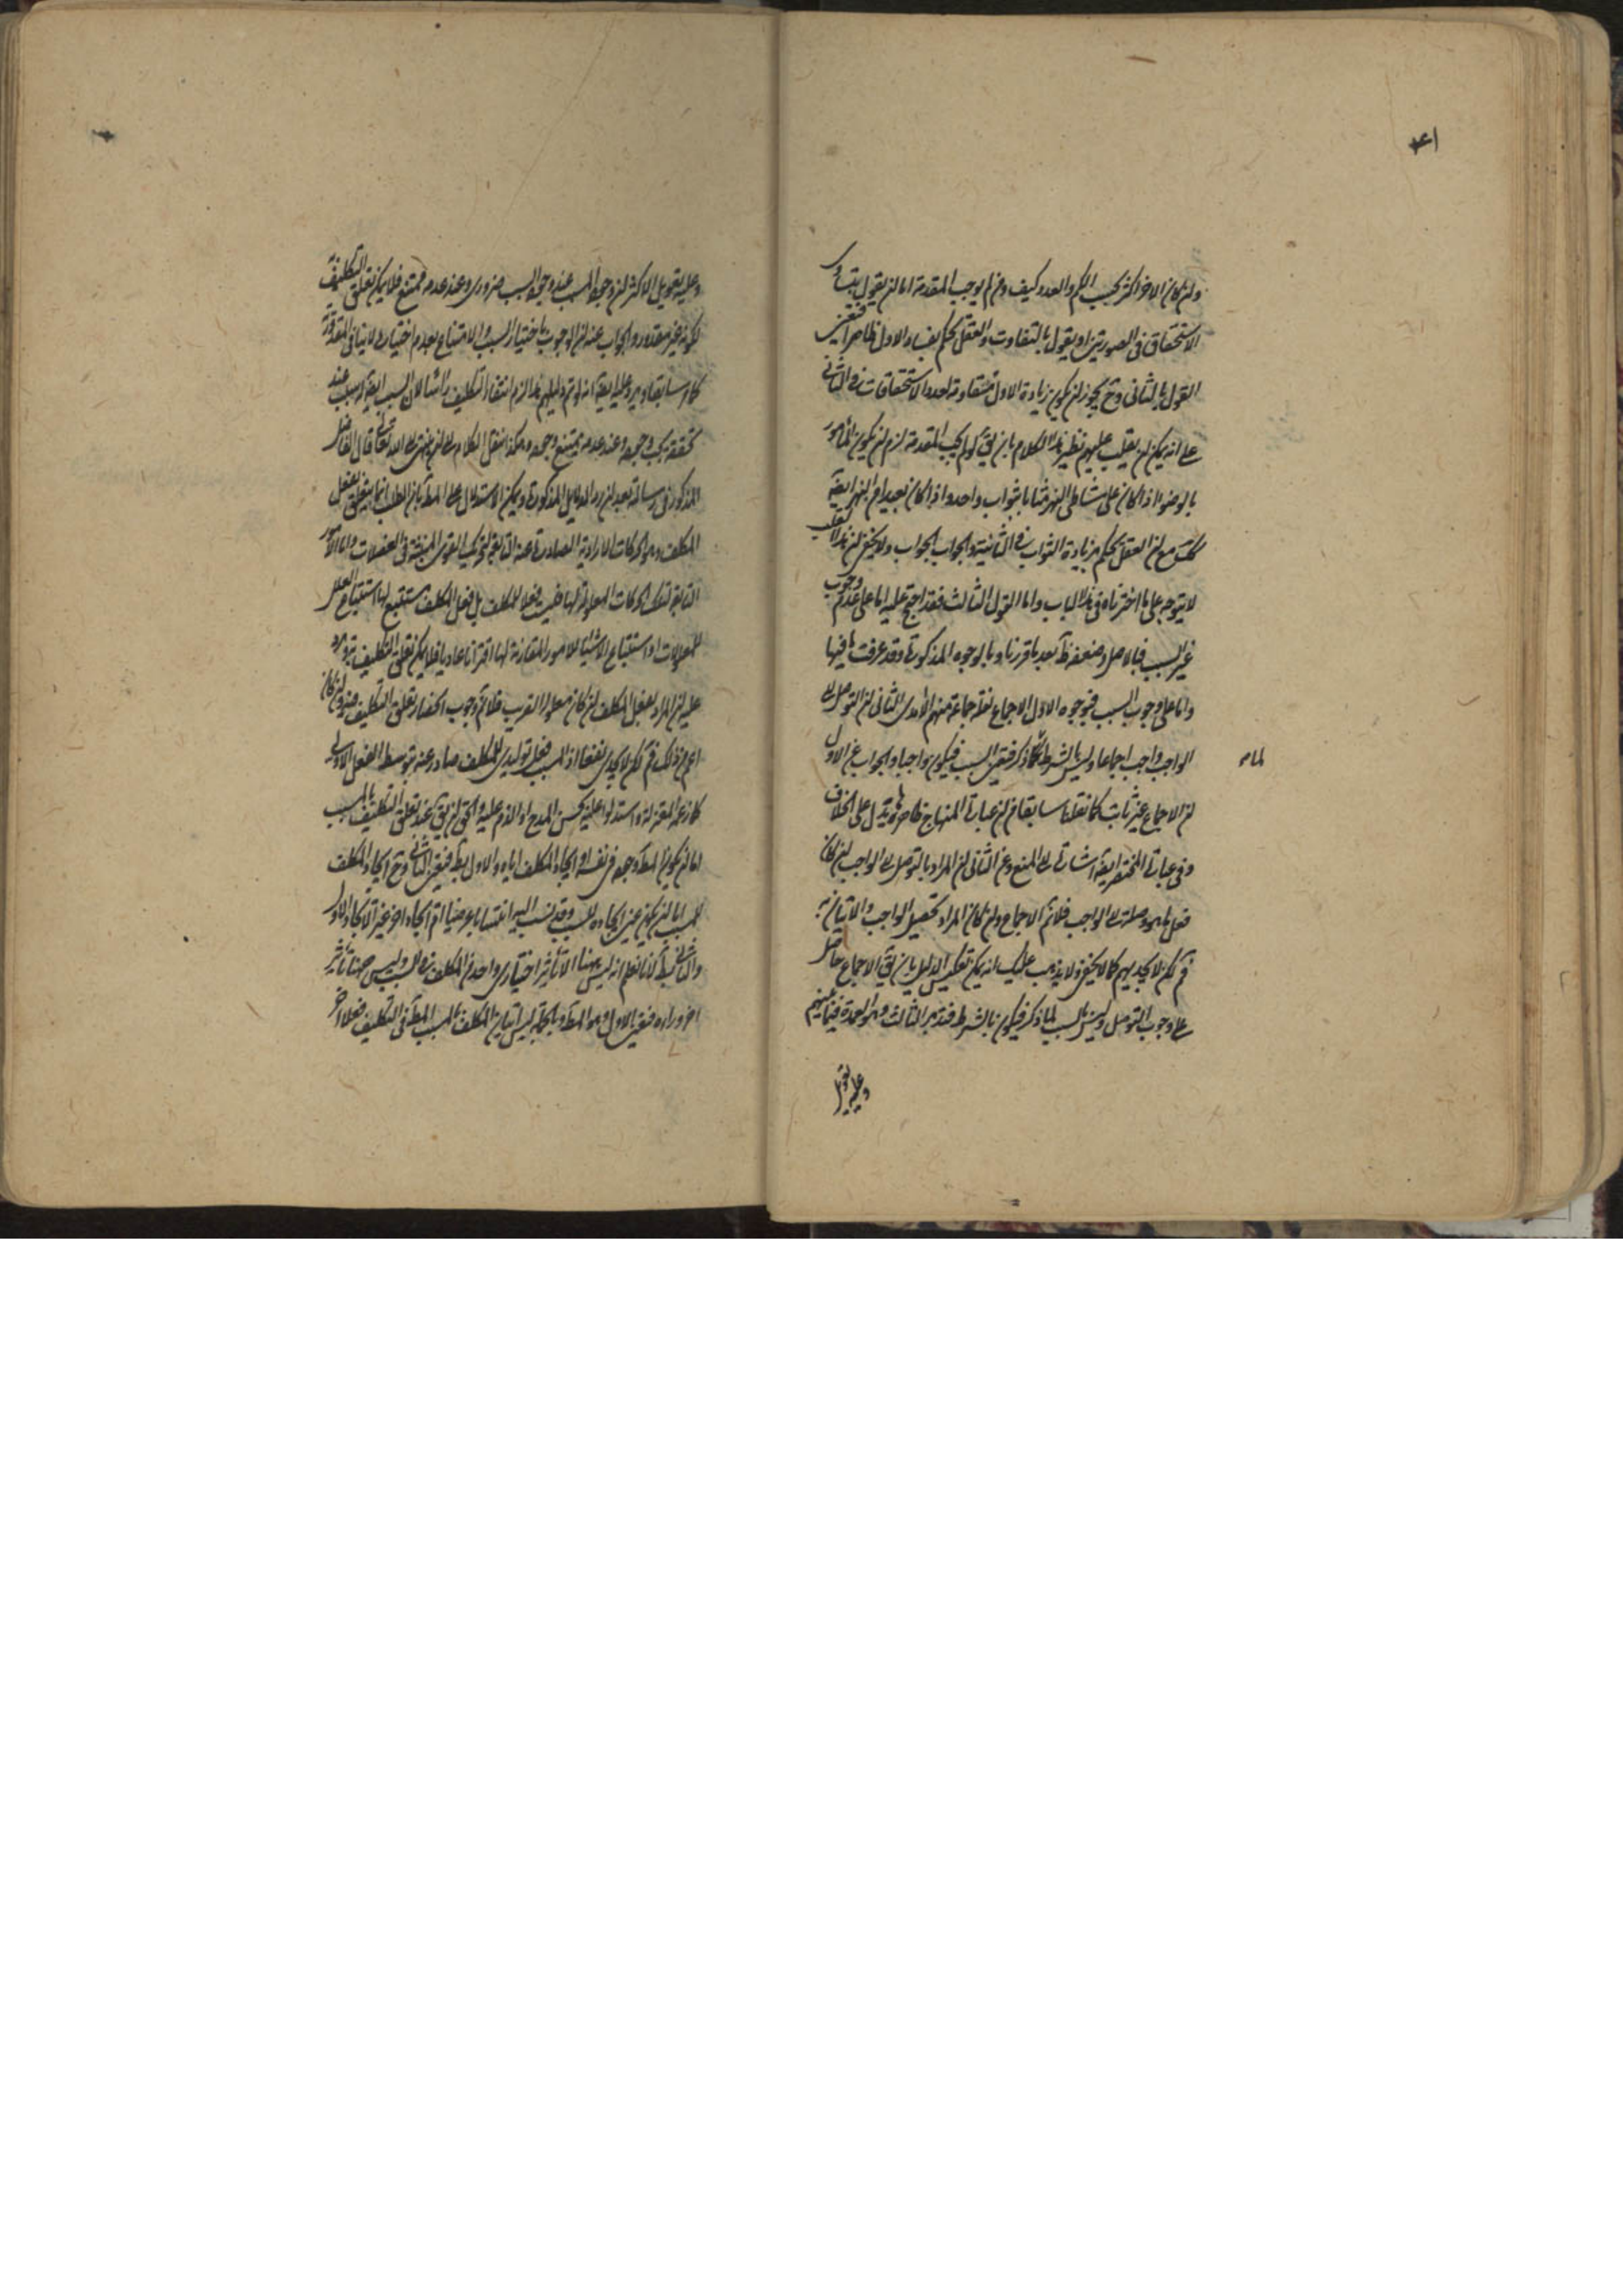 ٤١
وان كان الاخر اكثر بحسب الكم والعدد وكيف ومن لم يوجب المقدمة اما ان يقول بتساوى
الاستحقاق فى الصورتين او يقول بالتفاوت والعقل يحكم بفساد الاول ظاهرا فتعين
القول بالثانى وح يجوز ان يكون زيادة الاول متقاومة لعدد الاستحقاقات فى الثانى
على انه يمكن ان يقلب عليهم نظير هذا الكلام بان يق لو لم يجب المقدمة لزم ان يكون المأمور
بالوضوء اذا كان على شاطى النهر مثابا بثواب واحد واذا كان بعيدا من النهر ايضا
كك مع ان العقل يحكم بزيادة الثواب فى الثانية والجواب الجواب ولا يخفى ان هذا القلب
لا يتوجه على ما اخترناه فى هذا الباب واما القول الثالث فقد احتج عليه اما على عدم وجوب
غير السبب فبالاصل وضعفه ظ بعد ما قررنا وبالوجوه المذكورة وقد عرفت ما فيها
واما على وجوب السبب فبوجوه الاول الاجماع نقله جماعة منهم الآمدى الثانى ان التوصل الى
الواجب واجب اجماعا وليس بالشرط لما ذكر فتعين السبب فيكون واجبا والجواب عن الاول
لما مر
ان الاجماع غير ثابت كما نقلنا سابقا من ان عبارة المنهاج ظاهرها يدل على الخلاف
وفى عبارة المختصر ايضا اشارة الى المنع وعن الثانى ان المراد بالتوصل الى الواجب ان كان
فعل ما هو وصلة الى الواجب فلا نم الاجماع وان كان المراد تحصيل الواجب والاتيان به
فم لكن لا يجديهم كما لا يخفى ولا يذهب عليك انه يمكن تعكيس الدليل بان يق الاجماع حاصل
على وجوب التوصل وليس بالسبب لما ذكر فيكون بالشرط فتدبر الثالث وهو العمدة فيما بينهم
وعليه تعويل
وعليه تعويل الاكثر ان وجود المسبب عند وجود السبب ضرورى وعند عدمه ممتنع فلا يمكن تعلق التكليف به
لكونه غير مقدور والجواب عنه ان الوجوب باختيار السبب والامتناع بعدم اختياره لا ينافى المقدورية
كما مر سابقا ويرد عليه ايضا انه لو تم دليلهم هذا لزم انتفاء التكليف رأسا لان السبب ايضا له سبب عند
تحققه يجب وجوده وعند عدمه يمتنع وجوده وهكذا ننقل الكلام الى ان ينتهى الى الله تعالى قال الفاضل
المذكور فى رسالته بعد ان رد الدلايل المذكورة ويمكن الاستدلال على المط بان الطلب انما يتعلق بفعل
المكلف وهو الحركات الارادية الصادرة عنه التابعة لتحريك القوى المنبثة فى العضلات واما الامور
التابعة لتلك الحركات المعلولة لها فليست فعلا للمكلف بل فعل المكلف مستتبع لها استتباع العلل
للمعلولات او استتباع الاشياء للامور المقارنة لها اقترانا عاديا فلا يمكن تعلق التكليف بها ويرد
عليه ان المراد بفعل المكلف ان كان معلوله القريب فلا نم وجوب انحصار تعلق التكليف فيه وان كان
اعم من ذلك فم لكن لا يجدى نفعا اذ المسبب فعل توليدى للمكلف صادر عنه بتوسط الفعل الاول
كما زعمه المعتزلة واستدلوا عليه بحسن المدح او الذم عليه والحق ان يق عند تعلق التكليف بالمسبب
اما ان يكون المط وجوده فى نفسه او ايجاد المكلف اياه والاول بط فتعين الثانى وح ايجاد المكلف
للمسبب اما ان يكون عين ايجاده للسبب وقد نسب اليه انتسابا عرضيا او ايجادا اخر غير الايجاد الاول
والثانى بط لانا نعلم انه ليس ههنا الا تأثير اختيارى واحد من المكلف فى السبب وليس ههنا تأثير
اخر وراءه فتعين الاول وهو المط وبالجملة ليس اتيان المكلف بالمسبب المط فى التكليف فعلا اخر